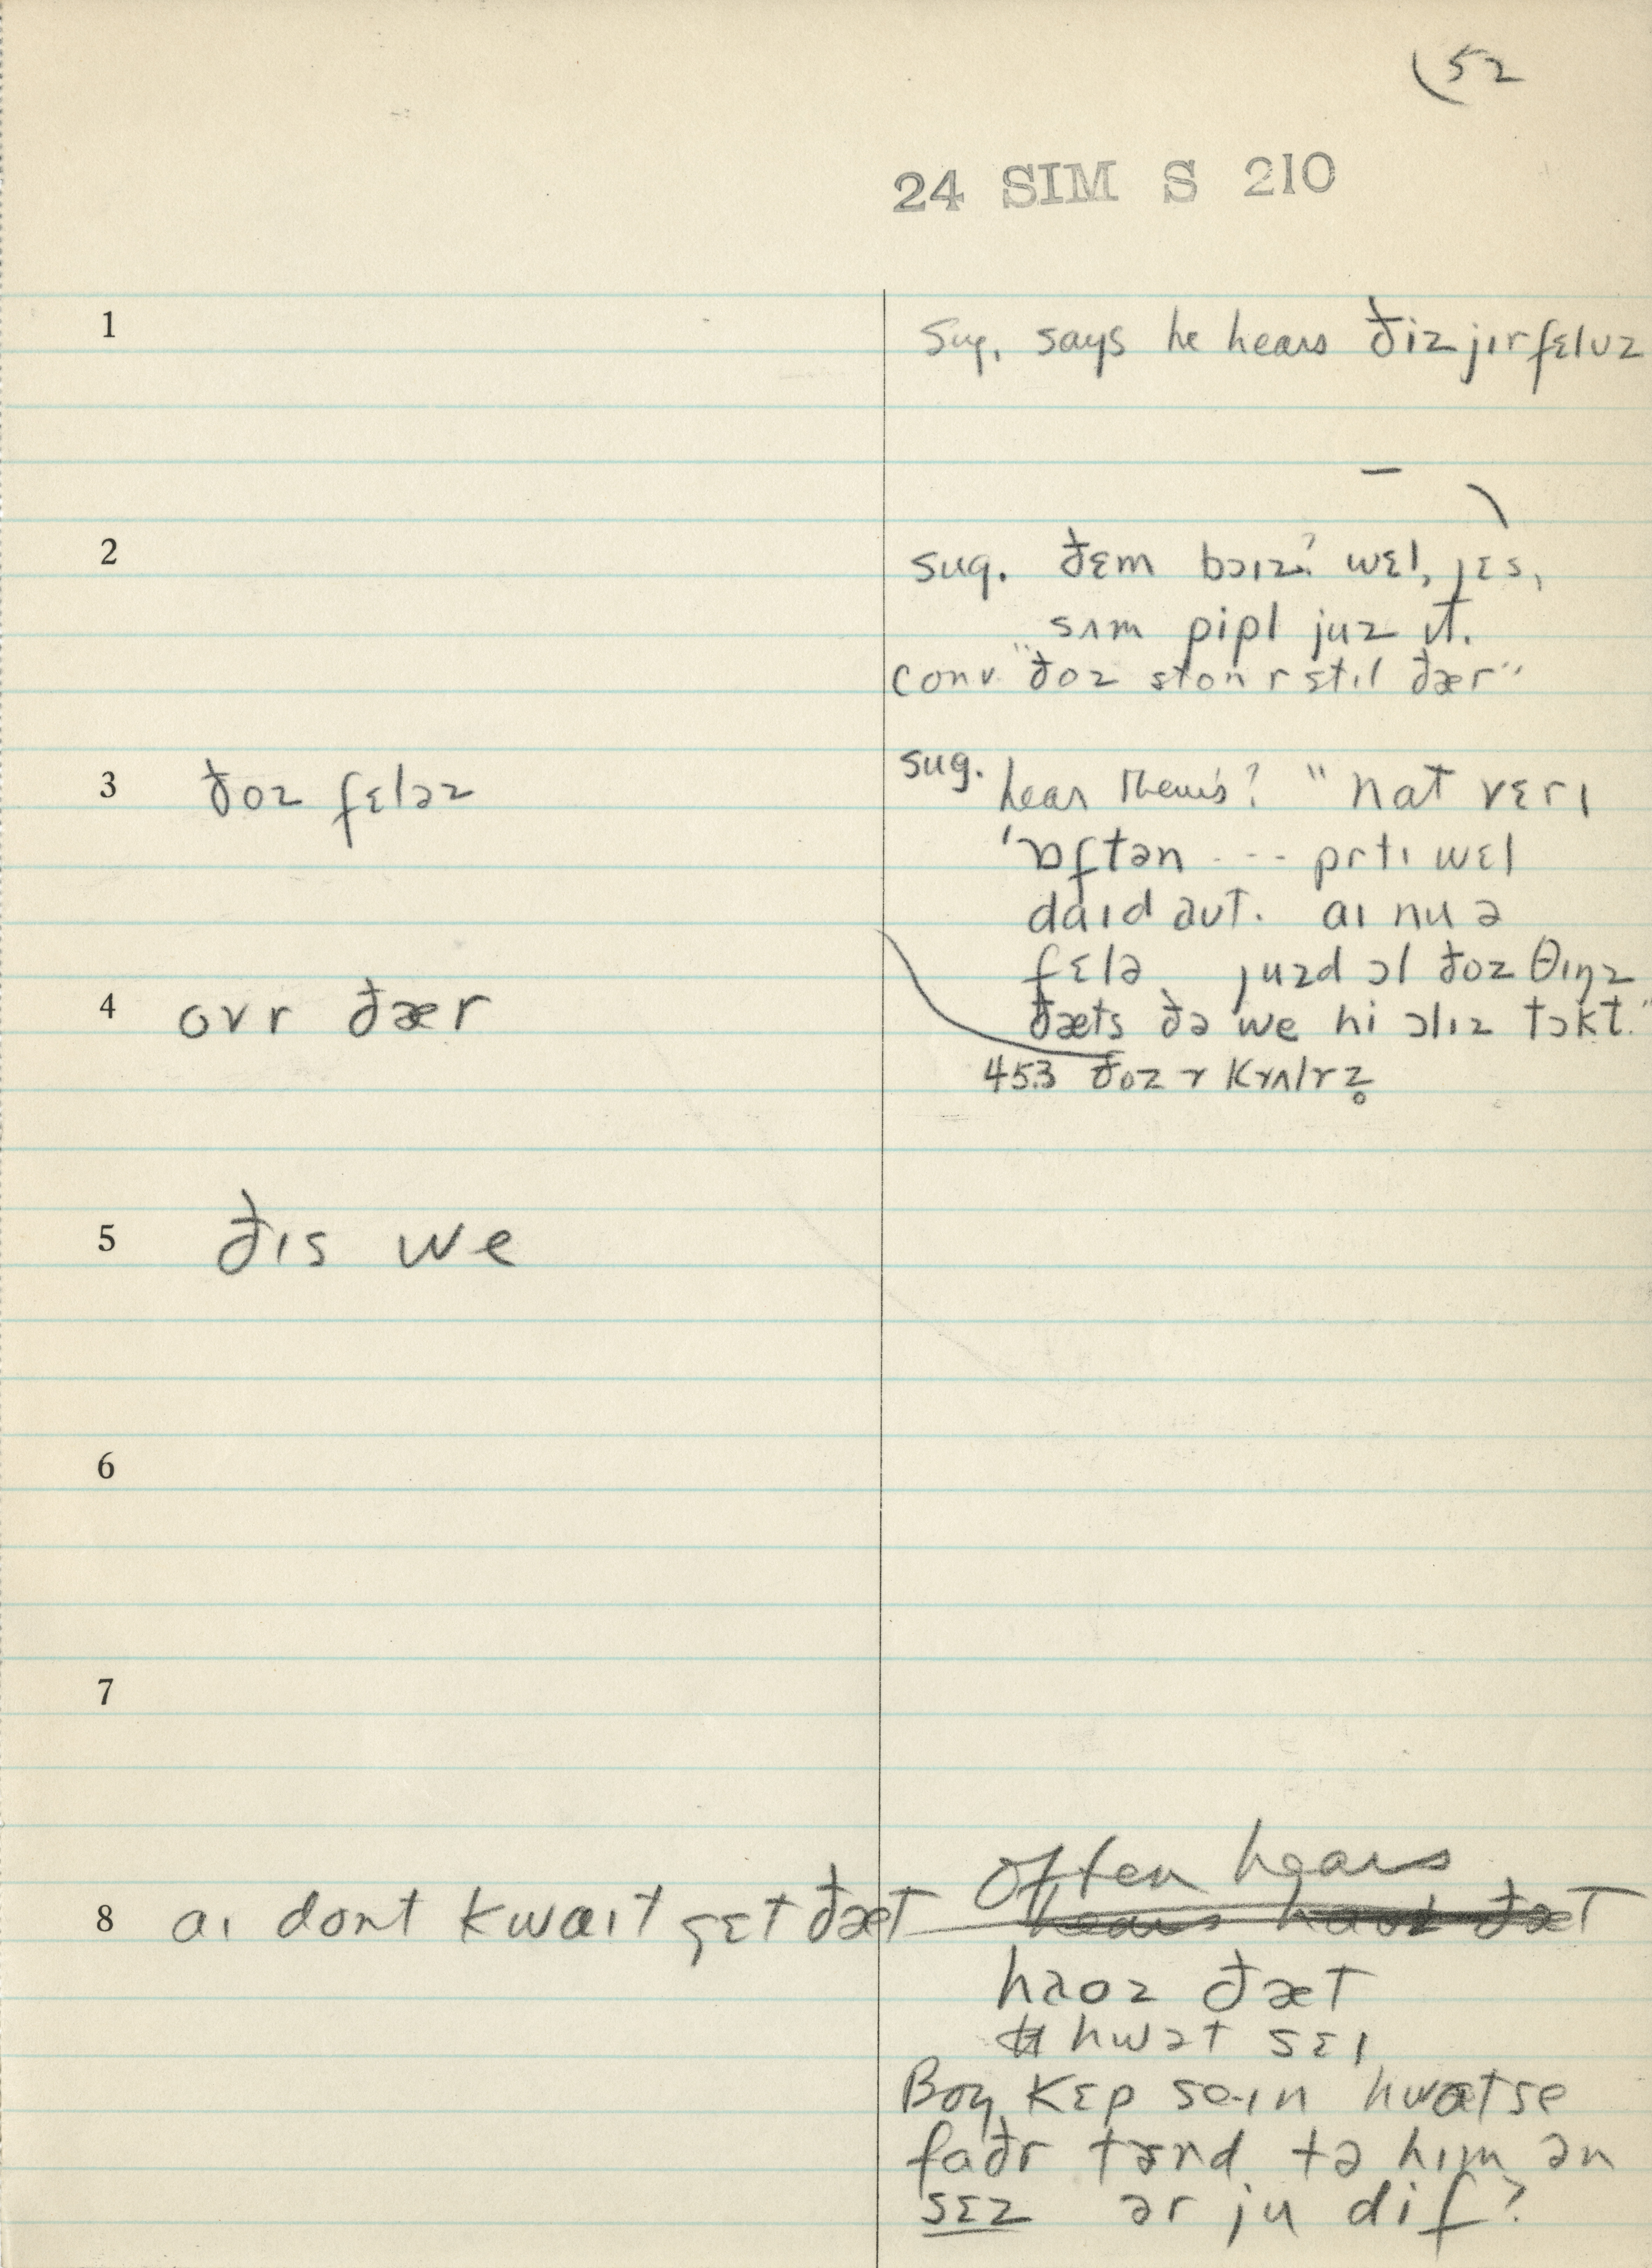 (52
24 SIM S 210
1 Sug. says he hears ðiz jɪr fɛlʊz
2 sug. ðɛm bɔɪz? wɛl, jɛs,
sʌm pipl juz ɪt.
conv. "ðoz ston r stɪl ðær"
3 ðoz fɛləz sug. hear theirs? "nat vɛrɪ
'ɒftən --- prtɪ wɛl
daɪd aʊt. aɪ nu ə
fɛlə juzd ɔl ðoz θɪŋz
4 ovr ðær ðæts ðə we hi ɔlɪz tɔkt."
453 ðoz r krʌlrz̥
5 ðɪs we
6
7
often hears
8 aɪ dont kwaɪt gɛt ðæt hears haoz ðæt
haoz ðæt
hwət sɛɪ
Boy kɛp se·ɪn hwatse
faðr tɝnd tə hɪm ən
sɛz ər ju dɪf?